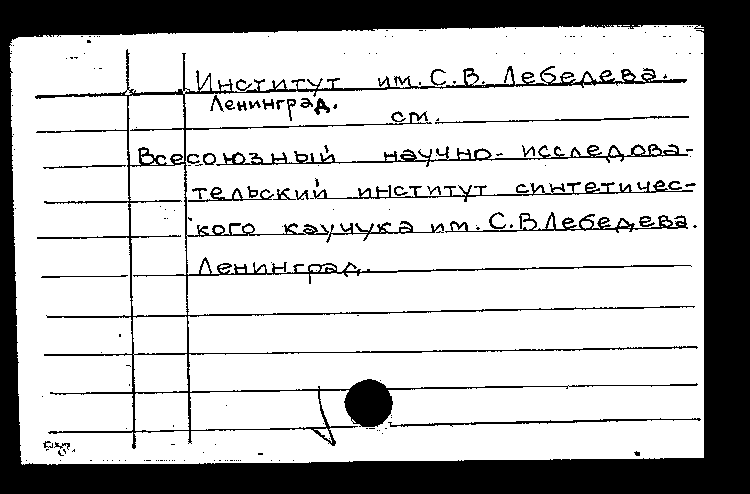 Институт им. С.В. Лебедева.
Ленинград.
см.
Всесоюзный научно-исследова-
тельский институт синтетичес-
кого каучука им. С.В Лебедева.
Ленинград.